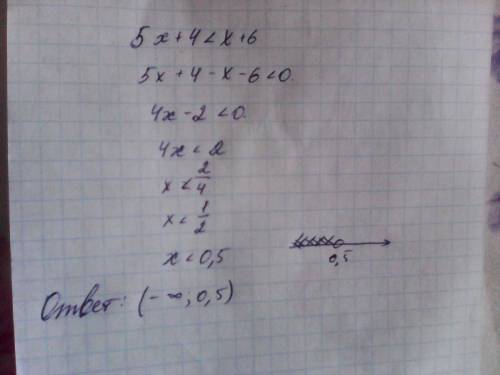 5x+4<x+6
5x+4-x-6<0.
4x-2<0.
4x<2
x<2/4
x<1/2
x<0,5
0,5
Ответ: (-∞; 0,5)